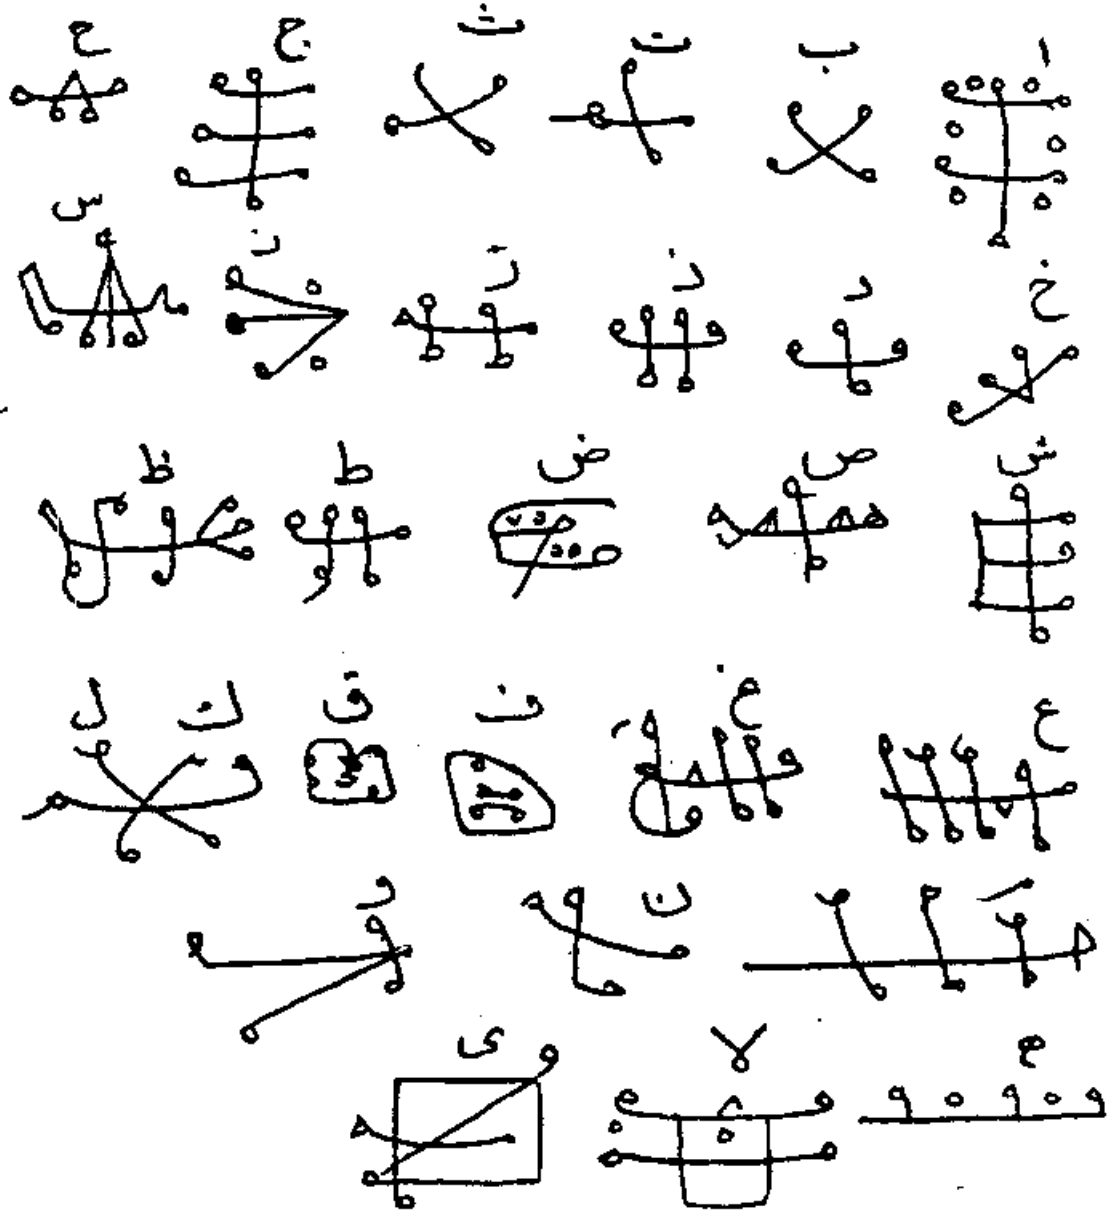 ا ب ت ث ج ح
خ د ذ ز ن س
ش ص ض ط ظ
ع غ ف ق ك ل
م ن و
ه لا ى